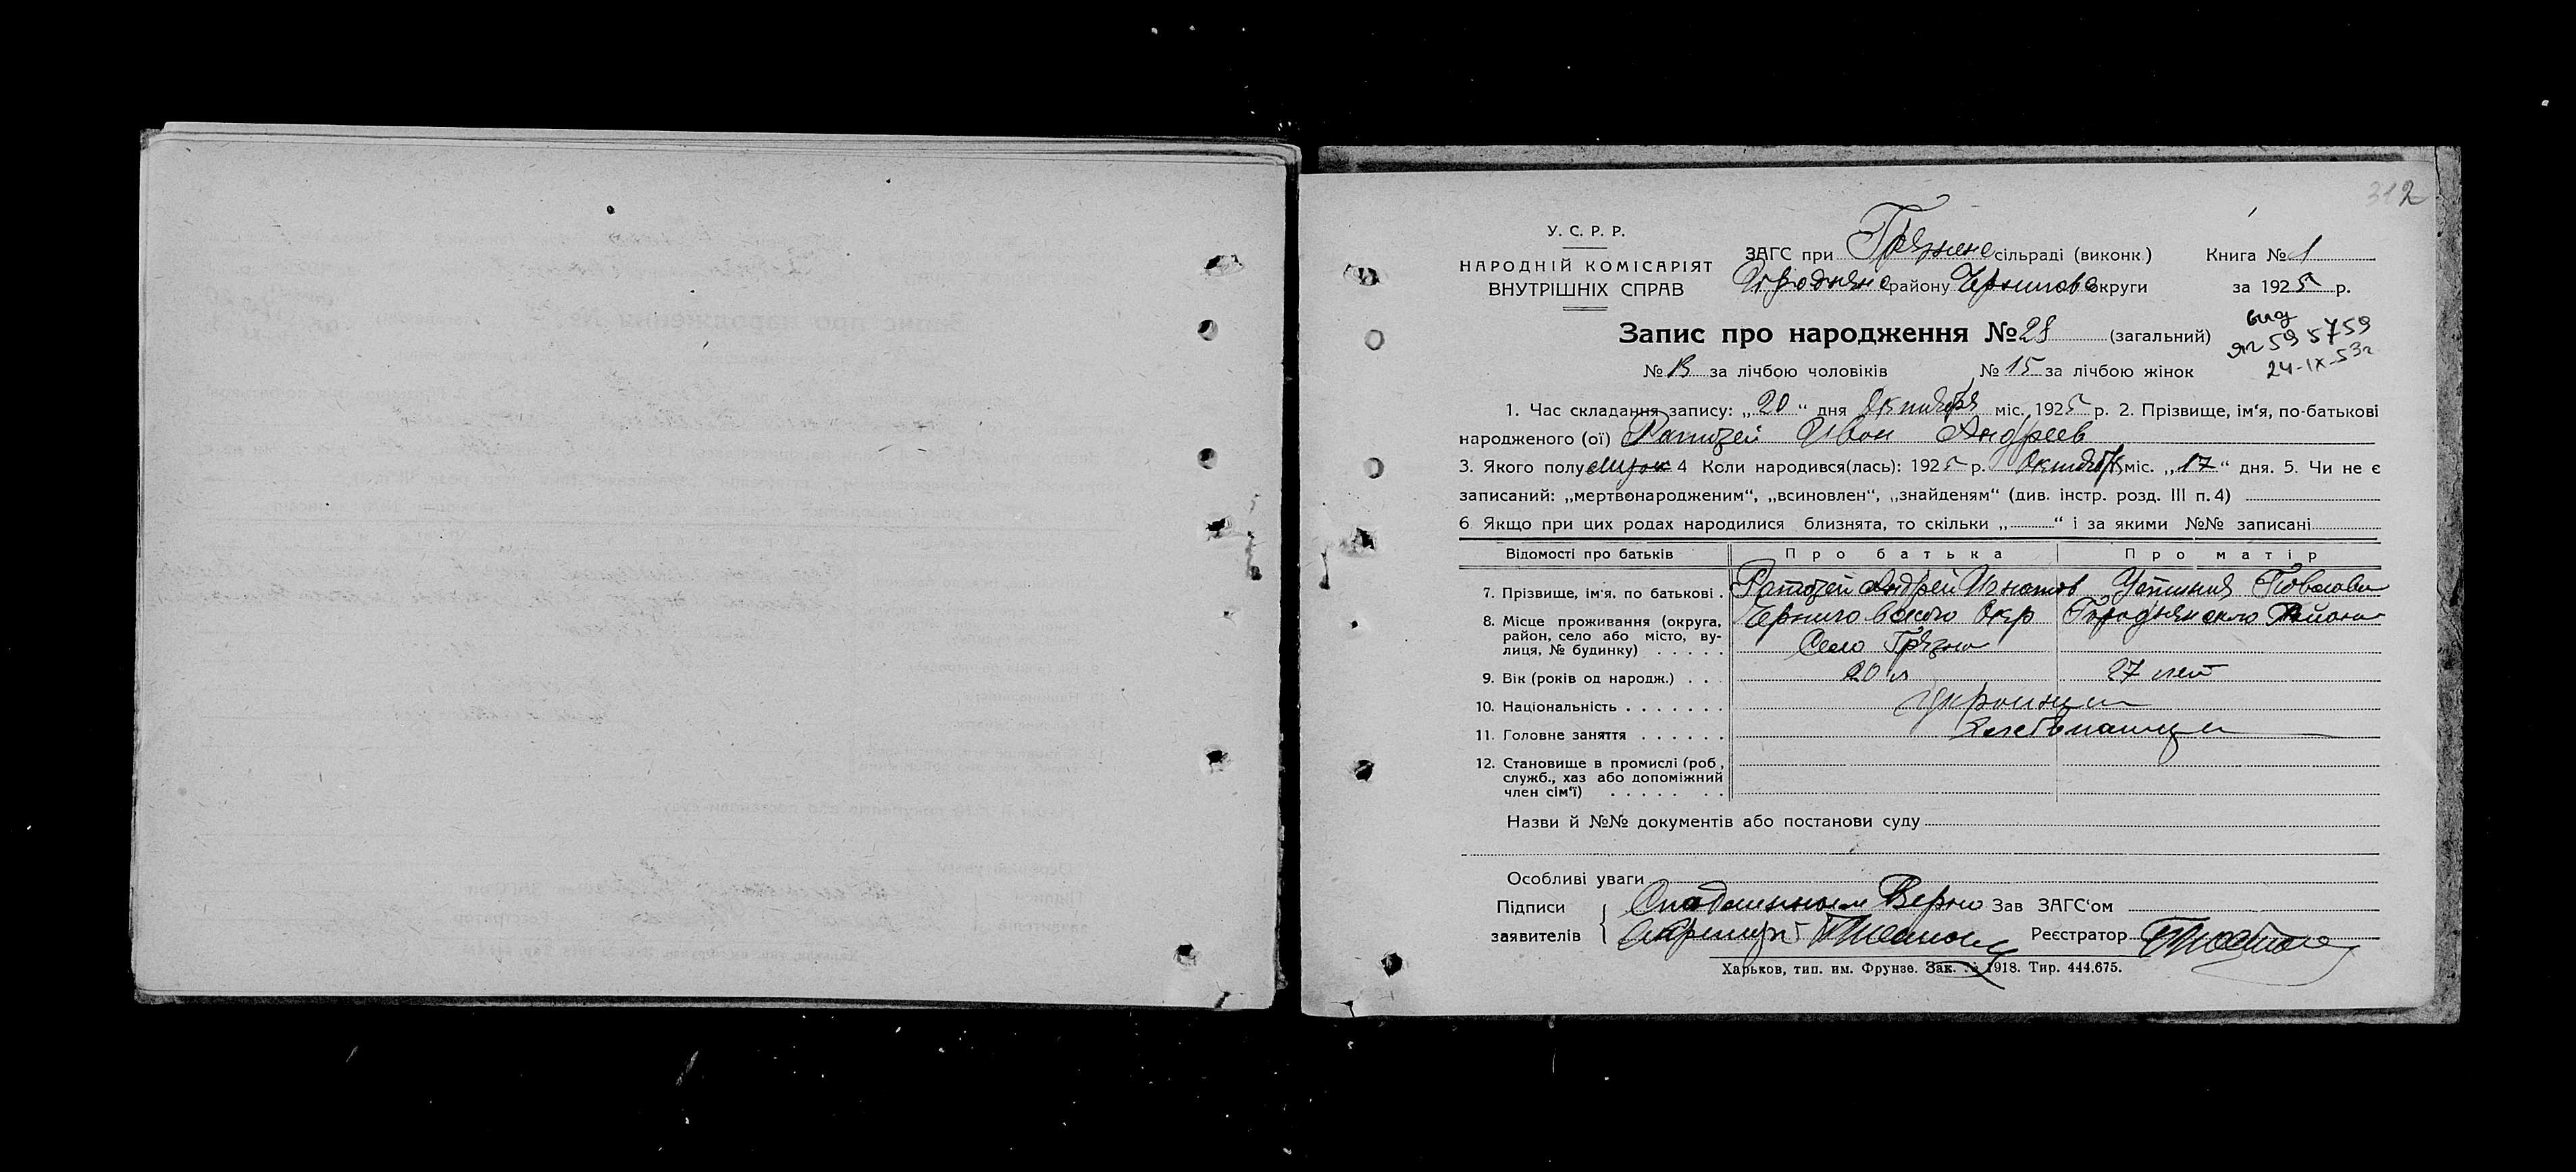 312
У. С. Р. Р.
НАРОДНІЙ КОМІСАРІЯТ
ВНУТРІШНІХ СПРАВ
ЗАГС при сільраді (виконк.) Книга № 1
району округи за 1925 р.
Запис про народження № 28 (загальний)
24-IX-53г
№ за лічбою чоловіків № 15 за лічбою жінок
1. Час складання запису: „20“ дня Октября міс. 1925 р. 2. Прізвище, ім‘я, по-батькові
народженого (ої) Иван Андреев
3. Якого полу 4 Коли народився(лась): 1925 р. Октября міс. „17“ дня. 5. Чи не є
записаний: „мертвонародженим“, „всиновлен“, „знайденям“ (див. інстр. розд. III п. 4)
6 Якщо при цих родах народилися близнята, то скільки „ “ і за якими №№ записані
Відомості про батьків Про батька Про матір
7. Прізвище, ім‘я, по батькові . Андрей Игнатов
8. Місце проживання (округа, район, село або місто, вулиця, № будинку) . . . . . Черниговского Окр Городнянского Района
Село Грязно
9. Вік (років од народж.) . . . 20 л 27 лет
10. Національність . . . . . . . украинцы
11. Головне заняття . . . . . . хлебпашцы
12. Становище в промислі (роб, служб., хаз або допоміжний член сім‘ї) . . . . . . .
Назви й №№ документів або постанови суду
Особливі уваги
Підписи С подлинным Верно Зав ЗАГС‘ом
заявителів Секретарь Реєстратор
Харьков, тип. им. Фрунзе. Зак. № 1918. Тир. 444.675.